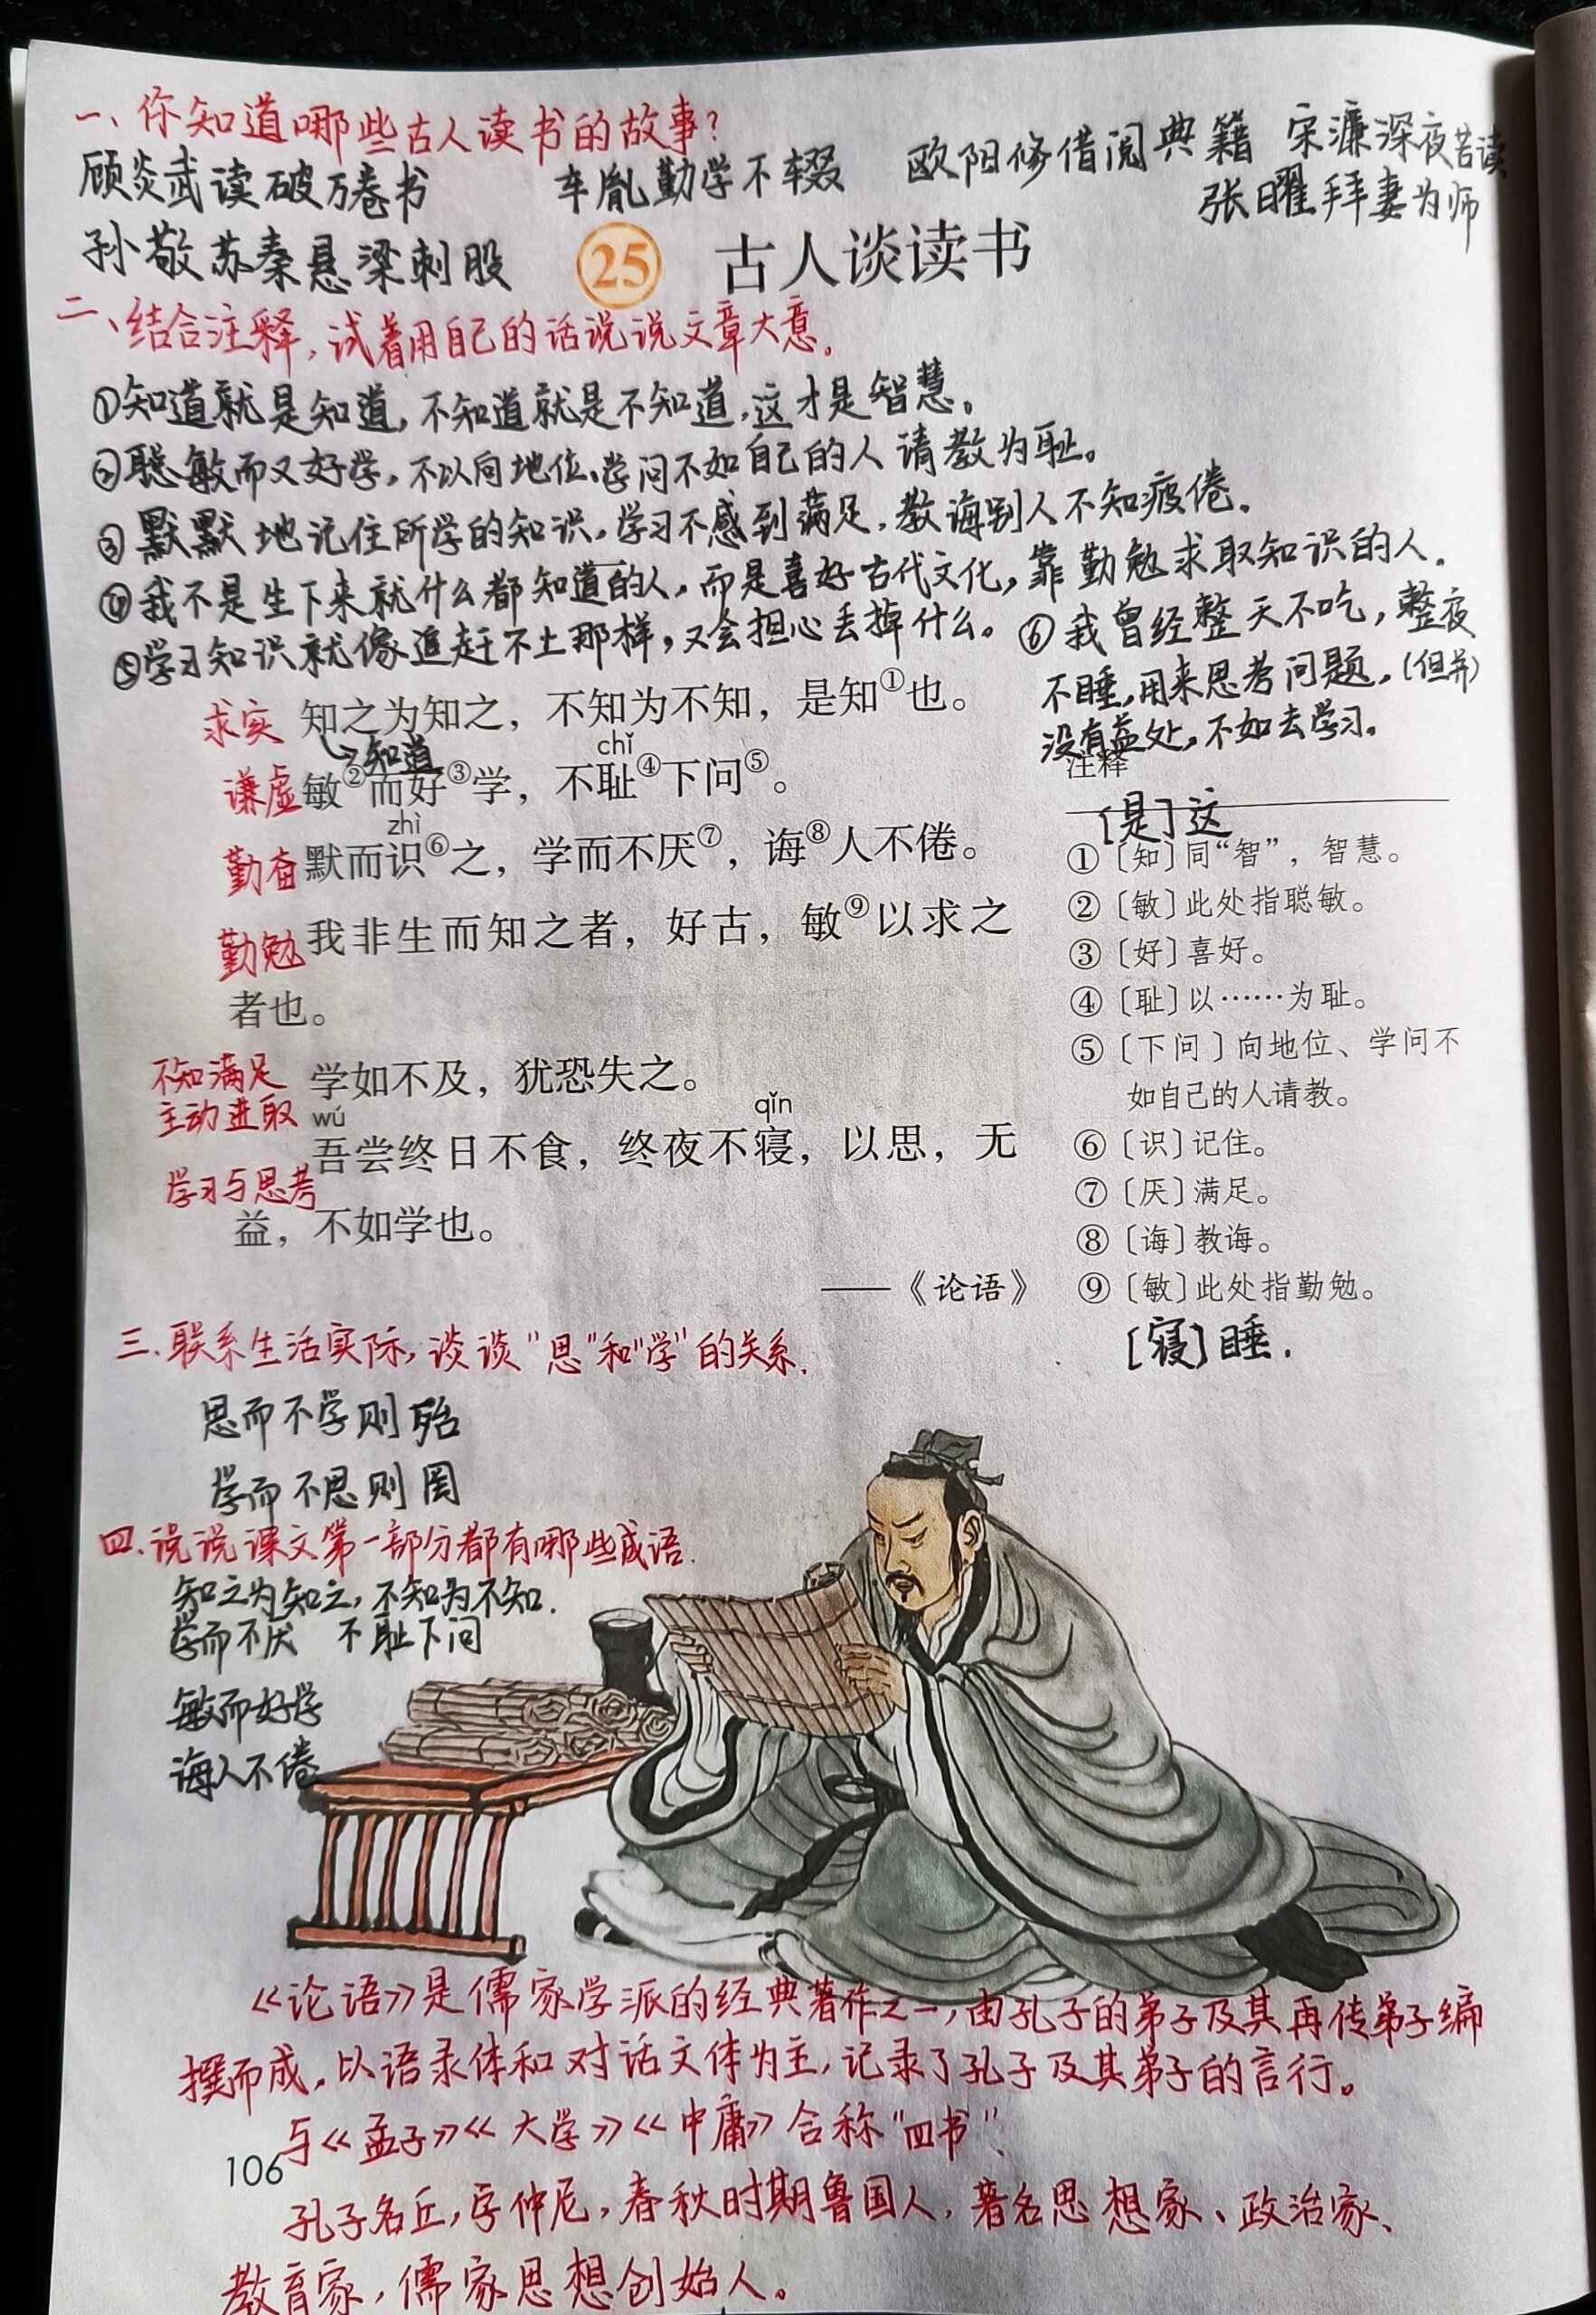 一、你知道哪些古人读书的故事?
顾炎武读破万卷书 车胤勤学不辍 欧阳修借阅典籍 宋濂深夜苦读
张曜拜妻为师
孙敬苏秦悬梁刺股 25 古人谈读书
二、结合注释,试着用自己的话说说文章大意。
①知道就是知道,不知道就是不知道,这才是智慧。
②聪敏而又好学,不以向地位、学问不如自己的人请教为耻。
③默默地记住所学的知识,学习不感到满足,教诲别人不知疲倦。
④我不是生下来就什么都知道的人,而是喜好古代文化,靠勤勉求取知识的人。
⑤学习知识就像追赶不上那样,又会担心丢掉什么。
⑥我曾经整天不吃,整夜
不睡,用来思考问题,(但并)
没有益处,不如去学习。
求实 知之为知之,不知为不知,是知①也。
知道
chǐ
谦虚 敏②而好③学,不耻④下问⑤。
zhì
勤奋 默而识⑥之,学而不厌⑦,诲⑧人不倦。
勤勉 我非生而知之者,好古,敏⑨以求之
者也。
不知满足 学如不及,犹恐失之。
主动进取
wú qǐn
吾尝终日不食,终夜不寝,以思,无
学习与思考
益,不如学也。
——《论语》
注释
[是]这
①〔知〕同“智”,智慧。
②〔敏〕此处指聪敏。
③〔好〕喜好。
④〔耻〕以……为耻。
⑤〔下问〕向地位、学问不
如自己的人请教。
⑥〔识〕记住。
⑦〔厌〕满足。
⑧〔诲〕教诲。
⑨〔敏〕此处指勤勉。
[寝]睡.
三.联系生活实际,谈谈“思”和“学”的关系.
思而不学则殆
学而不思则罔
四.说说课文第一部分都有哪些成语.
知之为知之,不知为不知.
学而不厌 不耻下问
敏而好学
诲人不倦
《论语》是儒家学派的经典著作之一,由孔子的弟子及其再传弟子编
撰而成。以语录体和对话文体为主,记录了孔子及其弟子的言行。
与《孟子》《大学》《中庸》合称“四书”.
106
孔子名丘,字仲尼,春秋时期鲁国人,著名思想家、政治家、
教育家,儒家思想创始人。